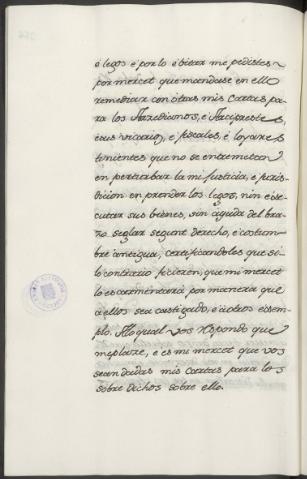 ó legos é por lo ebitar me pedistes
por mercet que mandase en ello
remediar con otras mis Cartas pa-
ra los Arzedianos, é Arciprestes,
é sus vicarios, é fiscales, é logares
tenientes que no se entremetan
en perturbar la mi justicia, é juris-
dicion en prender los legos, nin é exe-
cutar sus bienes, sin ayuda del bra-
zo seglar segunt derecho, é costum-
bre antigua, certificandoles que si
lo contrario ficieren, que mi mercet
lo escarmentará por manera que
á ellos sea castigado, é á otros exem-
plo. Alo qual vos respondo que
me plaze, é es mi mercet que vos
sean dadas mis cartas para los
sobre dichos sobre ello.